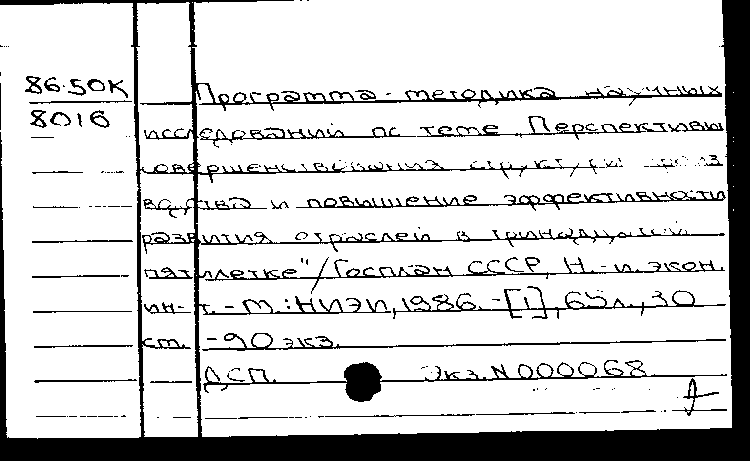 86-50К
8016
Программа-методика научных
исследований по теме „Перспективы
совершенствования структуры произ
водства и повышение эффективности
развития отраслей в тринадцатой
пятилетке"/Госплан СССР, Н.-и. экон.
ин-т.-М.:НИЭИ,1986.-[1],65л.,30
см. -90экз.
ДСП. Экз.N000068